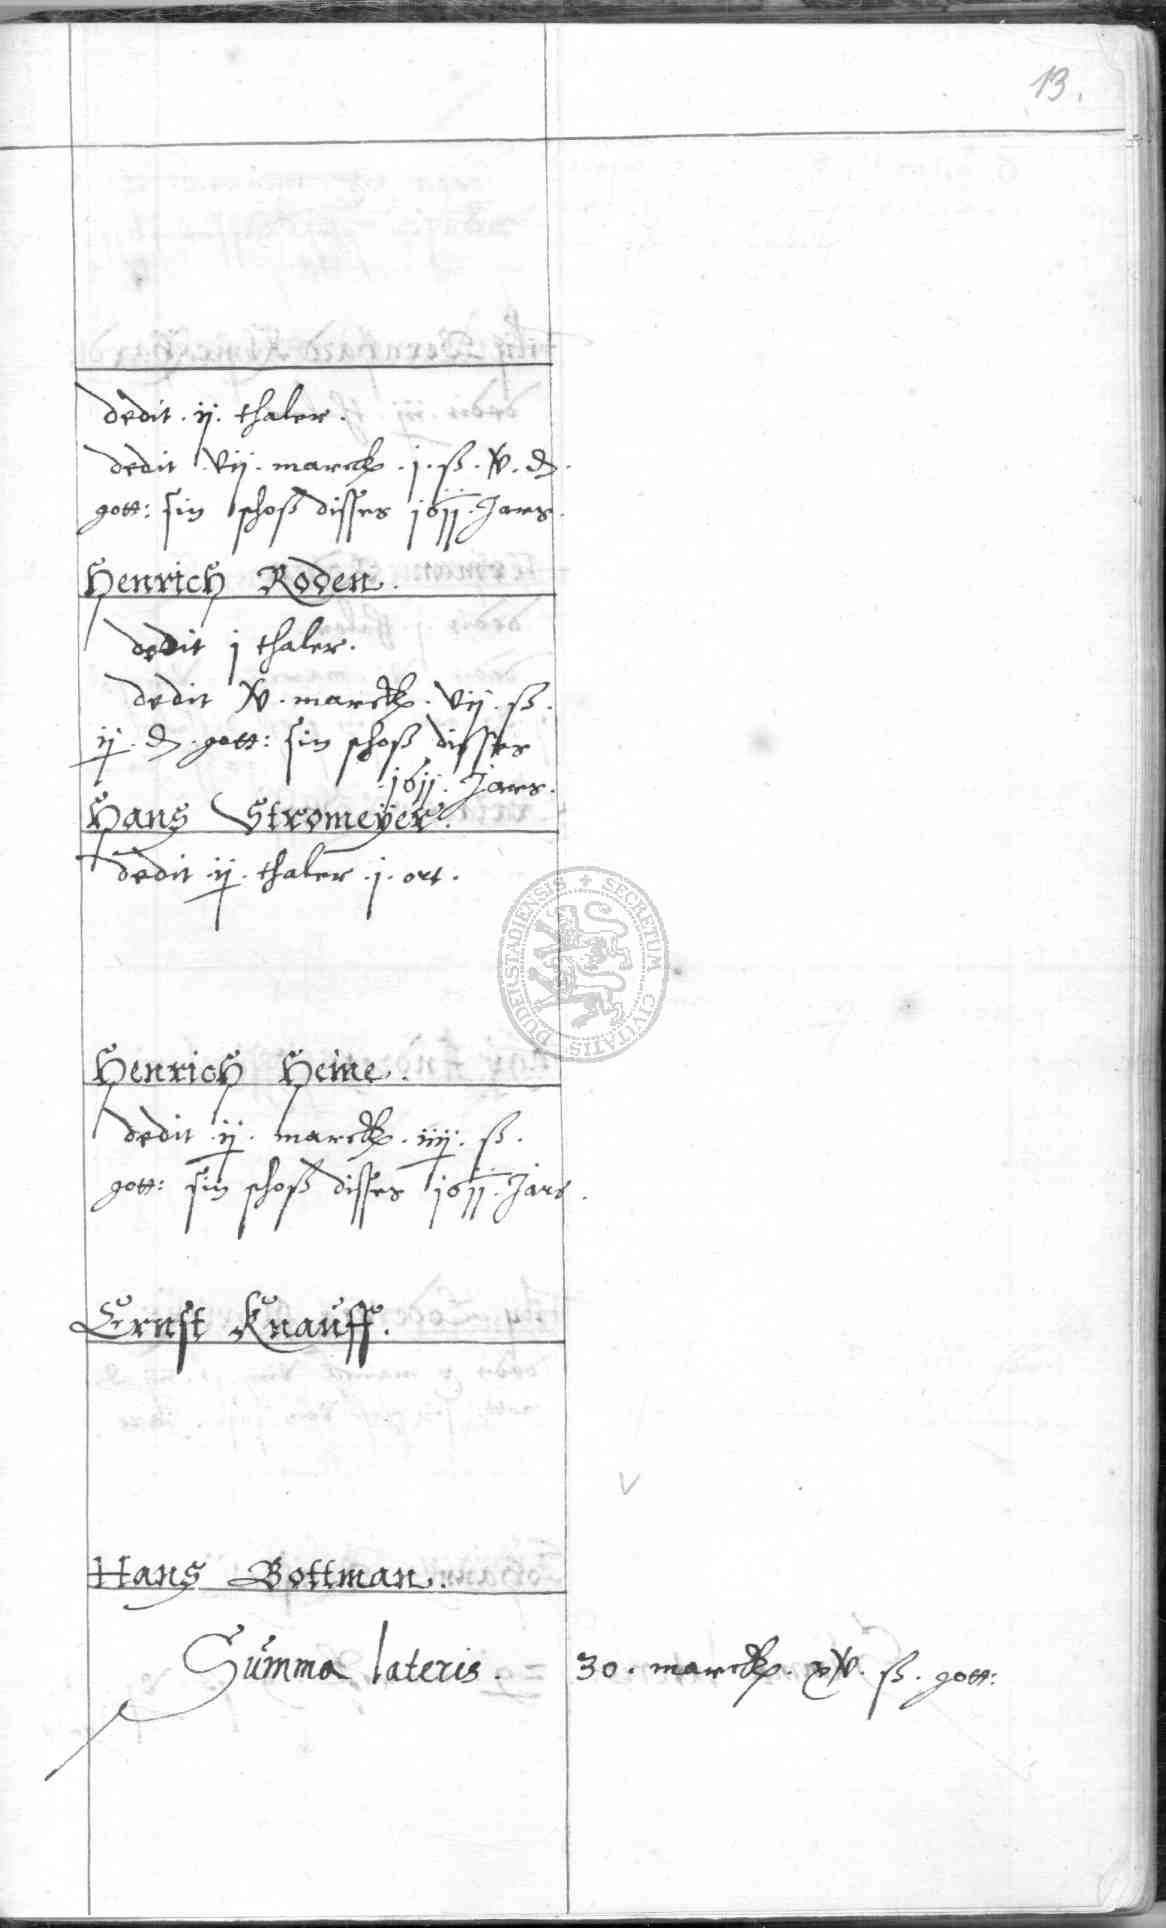 13.
dedit . ij . thaler .
dedit . vij . marck . j . ß . v . ₰ .
gott: sin schoß disses 1611 . Jars .
Henrich Roden .
dedit j thaler .
dedit v . marck . vij . ß .
ij . ₰ . gott: sin schoß disses
1611 . Jars .
Hans Stromeÿer .
dedit . ij . thaler . j . ort .
Henrich Heine .
dedit . ij . marck . iiij . ß .
gott: sin schoß disses 1611 . Jars .
Ernst Knauff .
Hans Bottman .
Summa lateris . 30 . marck . xv . ß . gott:
SECRETUM CIVITATIS DUDERSTADIENSIS